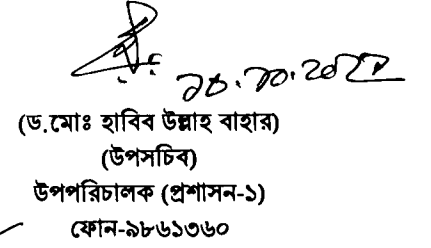 (ড.মোঃ হাবিব উল্লাহ বাহার)
(উপসচিব)
উপপরিচালক (প্রশাসন-১)
ফোন-৯৮৬১৩৬০